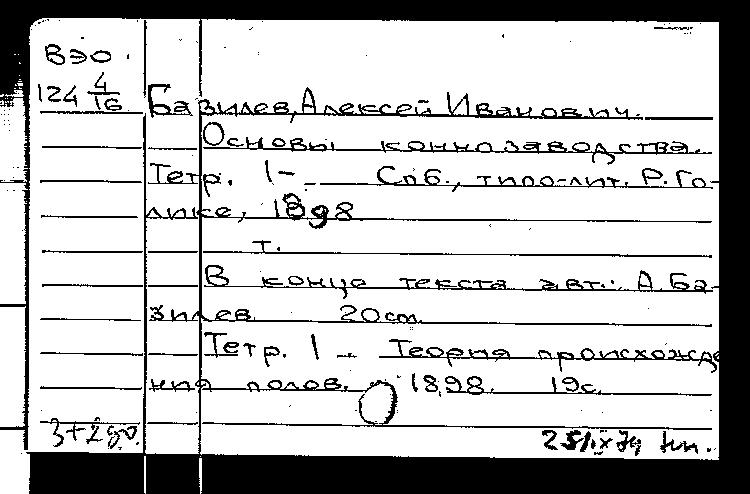 ВЭО.
124 4/16
Базилев, Алексей Иванович.
Основы коннозаводства.
Тетр. 1- Спб., типо-лит. Р. Го-
лике, 1898
т.
В конце текста авт.: А. Ба-
зилев 20см
Тетр. 1 - Теория происхожде
ния полов. - 1898. 19с.
3+2
25/IX